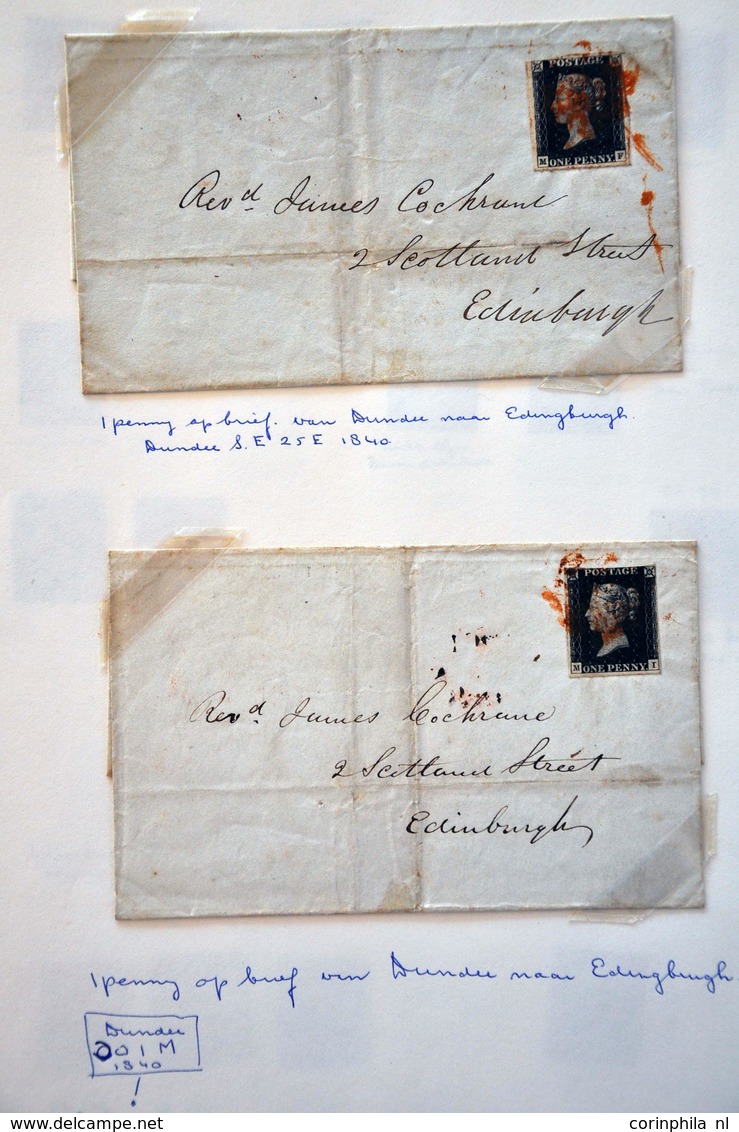 POSTAGE
M ONE PENNY F
Revd. James Cochrane
2 Scotland Street
Edinburgh
1 penny op brief. van Dundee naar Edingburgh.
Dundee S.E 25 E 1840.
POSTAGE
M ONE PENNY I
Revd. James Cochrane
2 Scotland Street
Edinburgh
1 penny op brief van Dundee naar Edingburgh
Dundee
OO 1 M
1840
!
Delcampe.net
corinphila nl